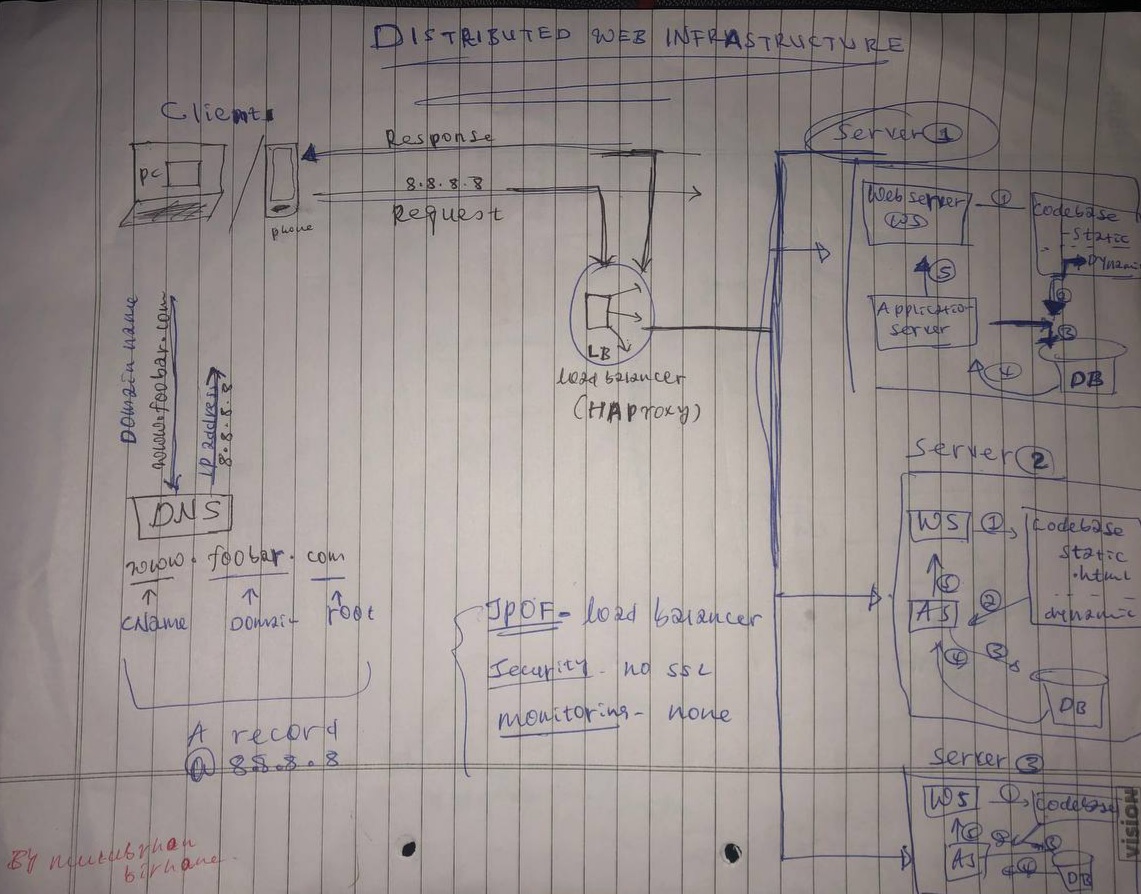 DISTRIBUTED WEB INFRASTRUCTURE
Client
PC
phone
Response
8.8.8.8
Request
LB
load balancer
(HAproxy)
Domain name
www.foobar.com
IP address
8.8.8.8
DNS
www. foobar. com
cName
Domain
root
A record
@ 8.8.8.8
SPOF - load balancer
Security - no SSL
monitoring - none
Server 1
Web server
WS
1
codebase
- static
Dynami
5
Applicatio
server
3
4
DB
Server 2
WS
1
codebase
static
.html
dynamic
AS
2
3
4
DB
Server 3
WS
1
codebase
AS
4
DB
VISION
By
birhane